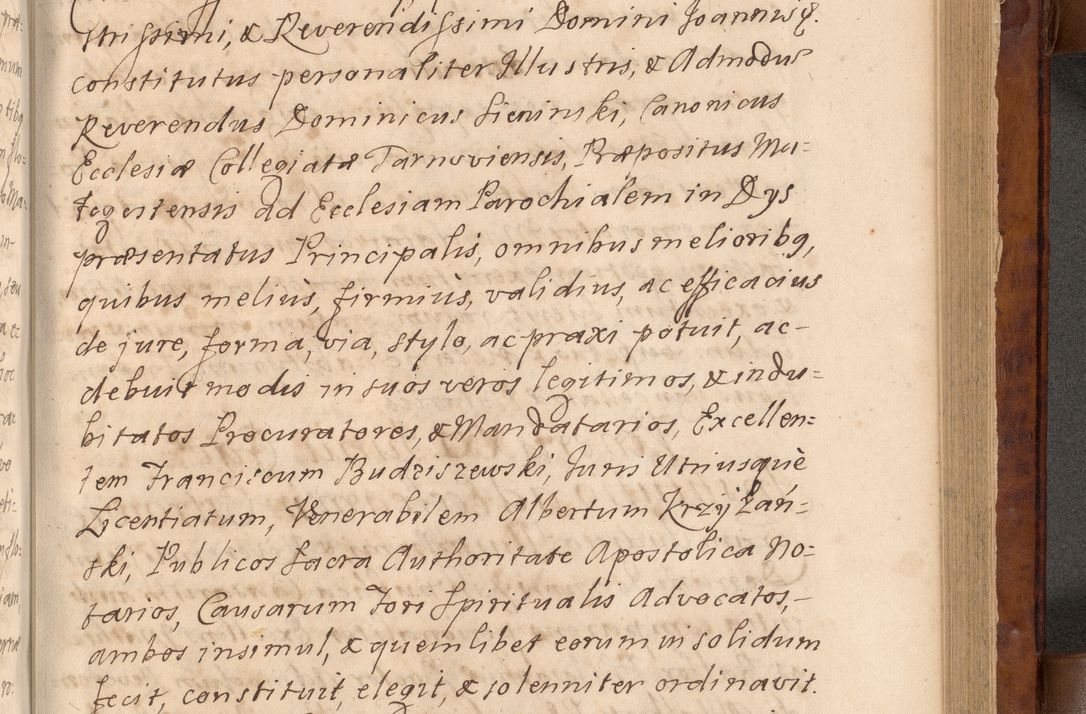 strissimi, & Reverendissimi Domini Joannis &.
constitutus personaliter Illustris, & Admodũ
Reverendus Dominicus Sieninski, Canonicus
Ecclesiæ Collegiatæ Tarnoviensis, Præpositus Ma-
ad Ecclesiam Parochialem in Dys
præsentatus Principalis, omnibus melioribq,
quibus meliùs, firmiùs, validius, ac efficacius
de jure, forma, via, stylo, ac praxi potuit, ac-
debuit modis in suos veros legitimos, & indu=
bitatos Procuratores, & Mandatarios, Excellen=
tem Franciscum Budziszewski, Juris Utriusquè
Licentiatum, Venerabilem Albertum Krzyżań=
ski, Publicos Sacra Authoritate Apostolica No=
tarios, Causarum Fori Spiritualis Advocatos,-
ambos insimul, & quemlibet eorum in solidum
fecit, constituit, elegit, & solenniter ordinavit.